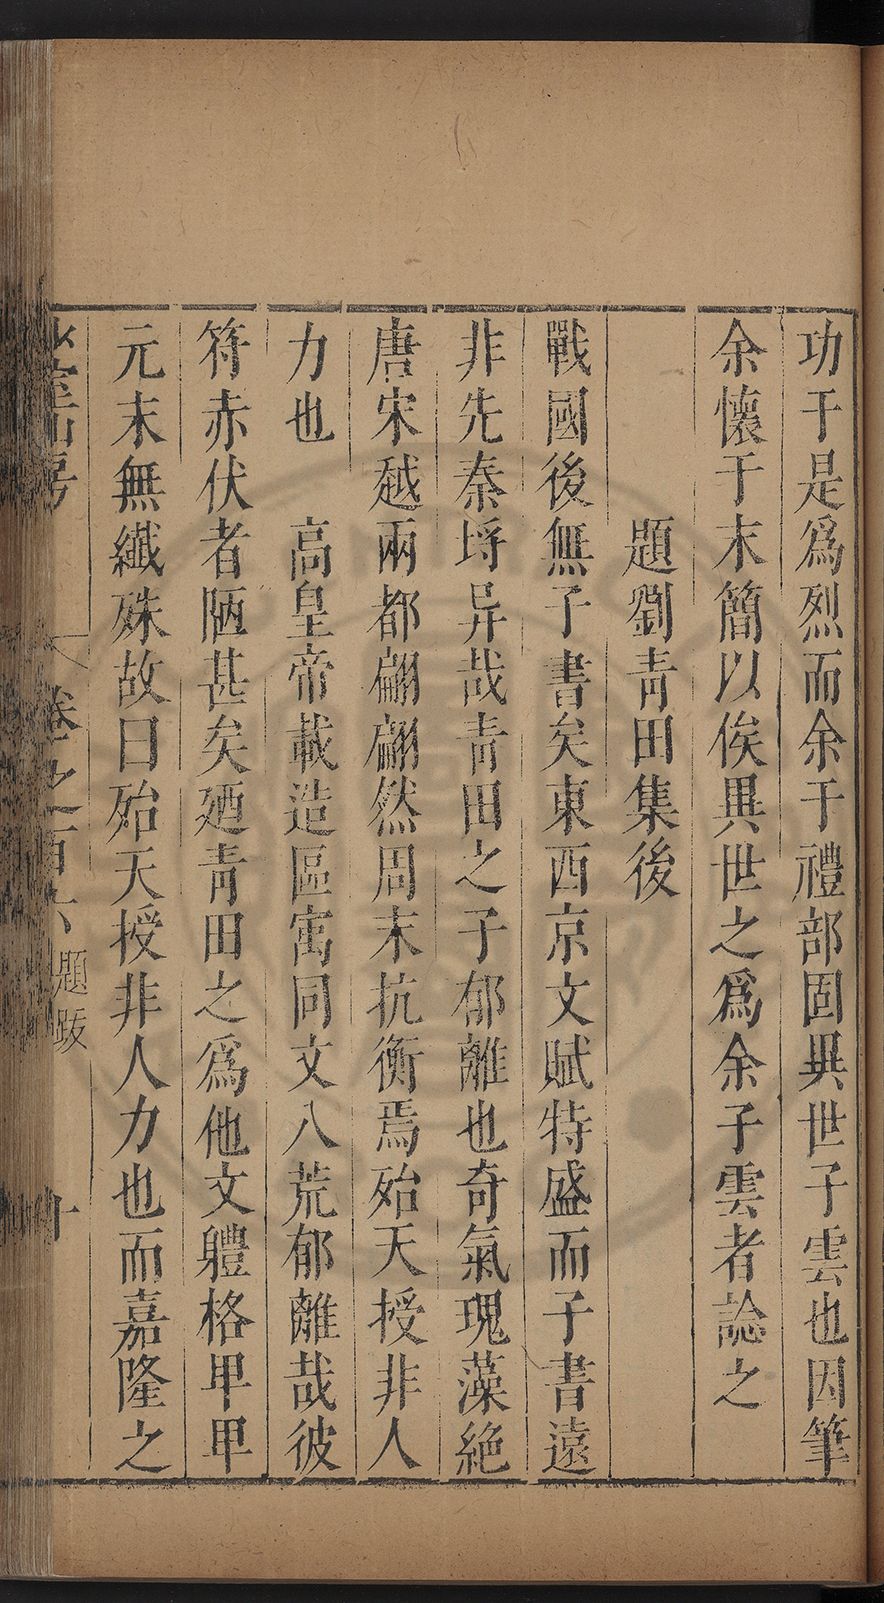 功于是爲烈而余于禮部固異世子雲也因筆
余懷于末簡以俟異世之爲余子雲者諗之
題劉靑田集後
戰國後無子書矣東西京文賦特盛而子書遠
非先秦埒异哉靑田之子郁離也奇氣瑰藻絶
唐宋越兩都翩翩然周末抗衡焉殆天授非人
力也　高皇帝載造區寓同文八荒郁離哉彼
符赤伏者陋甚矣廼靑田之爲他文軆格卑卑
元末無纖殊故曰殆天授非人力也而嘉隆之
房　卷之百六　題跋　十